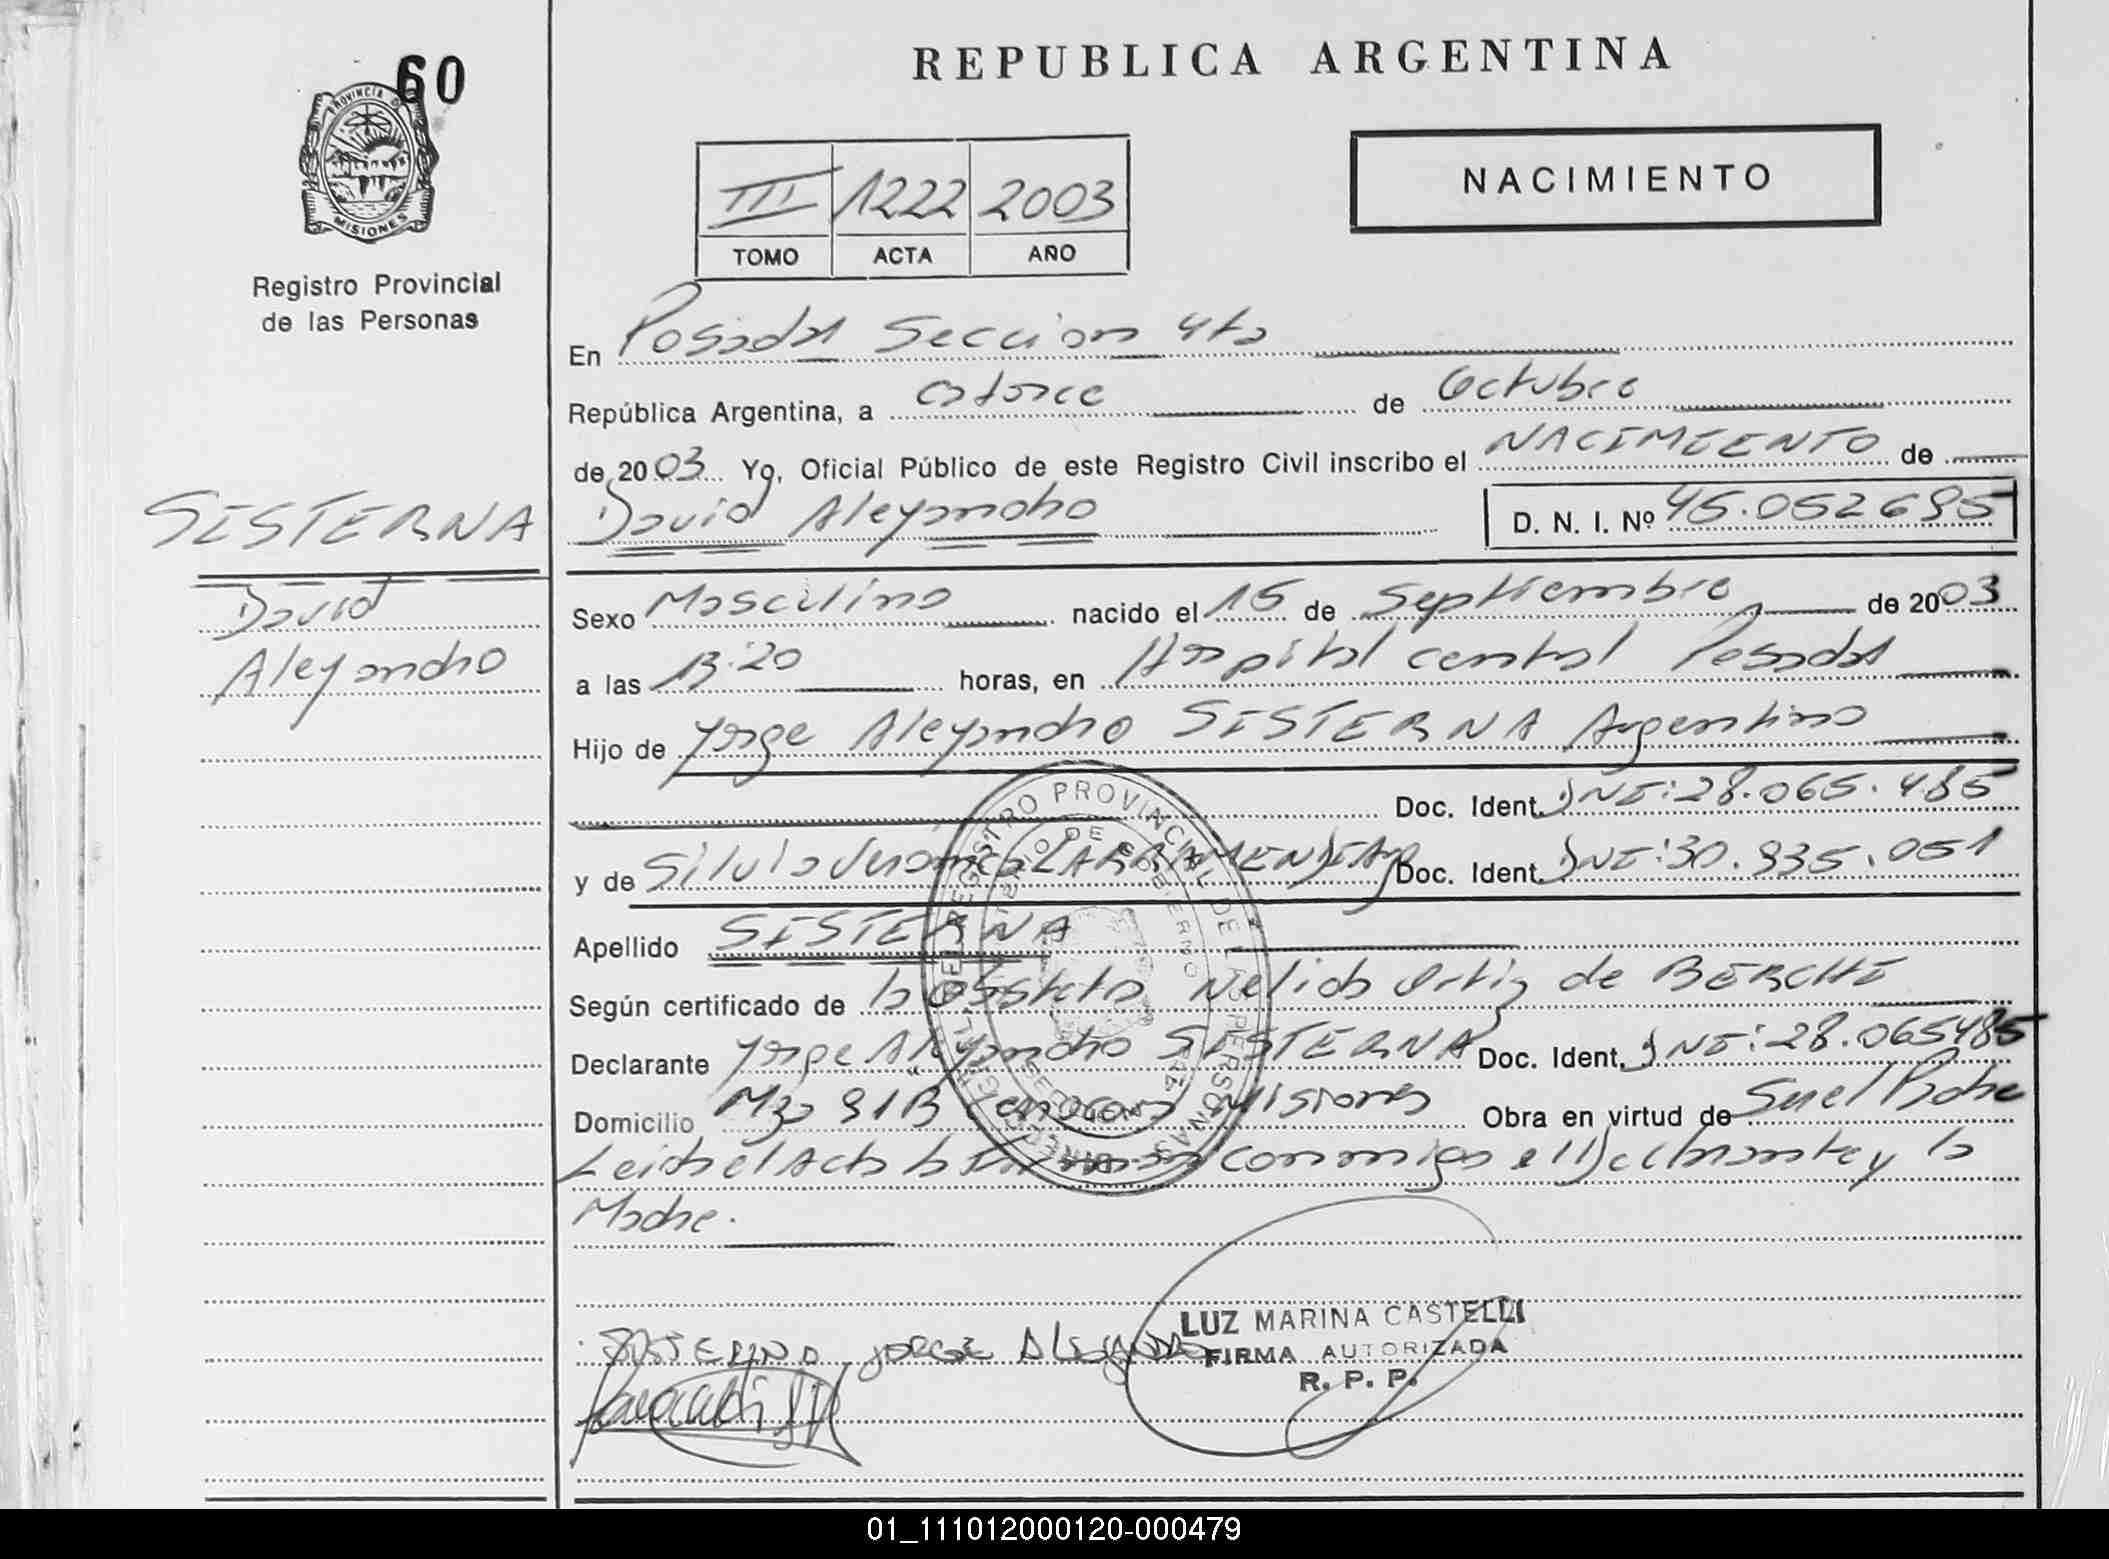 60
PROVINCIA DE
MISIONES
Registro Provincial
de las Personas
REPUBLICA ARGENTINA
NACIMIENTO
III 1222 2003
TOMO ACTA AÑO
En Posadas Seccion 4ta
República Argentina, a catorce de Octubre
de 2003 Yo, Oficial Público de este Registro Civil inscribo el NACIMIENTO de
SISTERNA
David Alejandro D. N. I. Nº 45.052695
David
Alejandro
Sexo Masculino nacido el 15 de Septiembre de 2003
a las 13:20 horas, en Hospital central Posadas
Hijo de Jorge Alejandro SISTERNA Argentino
Doc. Ident. DNI: 28.065.485
y de Silvia Veronica Doc. Ident. DNI: 30.935.051
Apellido SISTERNA
Según certificado de la Obsteta Nelida Ortiz de BERCHE
Declarante Jorge Alejandro SISTERNA Doc. Ident. DNI: 28.065485
Domicilio Mza 91B Misiones Obra en virtud de Ser el Padre
Leida el Acta la Firman conmigo el Declarante y la
Madre.
REGISTRO PROVINCIAL DE LAS PERSONAS
SISTERNA JORGE ALEJANDRO
LUZ MARINA CASTELLI
FIRMA AUTORIZADA
R. P. P.
01_111012000120-000479